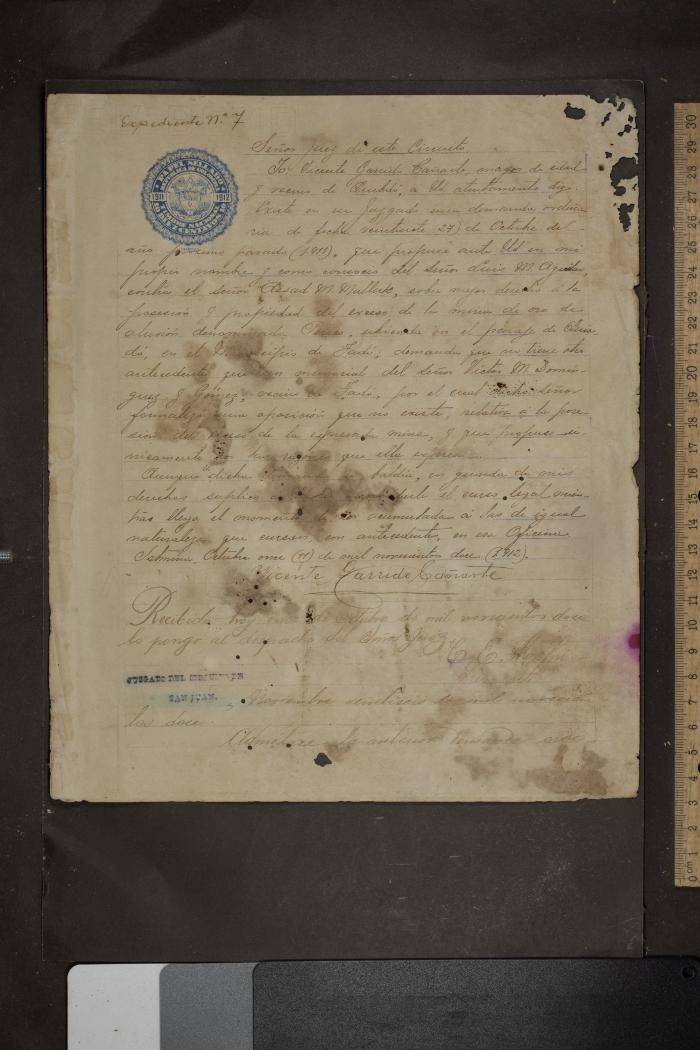 Expediente N.° 7
PAPEL SELLADO
1911 1912
Señor Juez de este Circuito.
Yo Vicente Garrido Cañarte, mayor de edad
y vecino de Quibdó, á Ud atentamente digo:
Existe en su Juzgado una demanda ordina
ria de fecha veintisiete (27) de Octubre del
año próximo pasado (1911), que propuse ante Ud en mi
propio nombre y como del Señor Luis M. Aguilar,
contra el Señor M. sobre mejor derecho á la
posesión y propiedad del exceso de la mina de oro de
aluvión denominada ubicada en el paraje de
dó, en el Municipio de Tadó; demanda que no tiene otro
antecedente que un memorial del Señor Víctor M. Domín-
guez y Gómez, vecino de Tadó, por el cual dicho señor
formalizó una oposición que no existe, relativa á la pose-
sión del exceso de la expresada mina, y que propuse ú-
nicamente por las razones que ella expresa.
Aunque dicha baldía, en guarda de mis
derechos suplico á el curso legal mien-
tras llega el momento de ser acumulada á las de igual
naturaleza que cursan, con antecedente, en esa Oficina
Istmina, Octubre once (11) de mil novecientos doce (1912).
Vicente Garrido Cañarte
Recibido hoy once de octubre de mil novecientos doce
lo pongo al despacho del Señor Juez
C. E.
JUZGADO DEL CIRCUITO DE
SAN JUAN.
Noviembre veintiseis de mil novecien
tos doce.
Admítese la anterior demanda